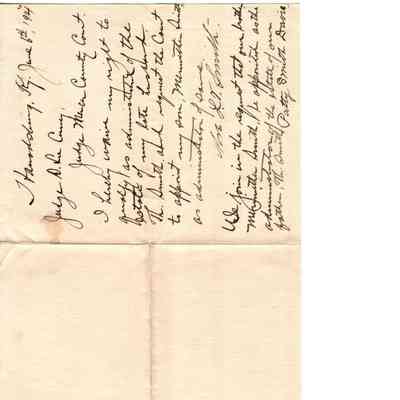 Harrodsburg, Ky. June 6th, 194
Judge
Judge Mercer County Court.
I hereby waive my right to
qualify as administratrix of the
estate of my late husband
Th. Smith and request the Court
to appoint my son, Meriwether Smith
as administrator of same
Mrs Smith.
We join in the request that our brother
Meriwether Smith be appointed as the
administrator of the estate of our
father, Th. Smith. Patty Smith Davis